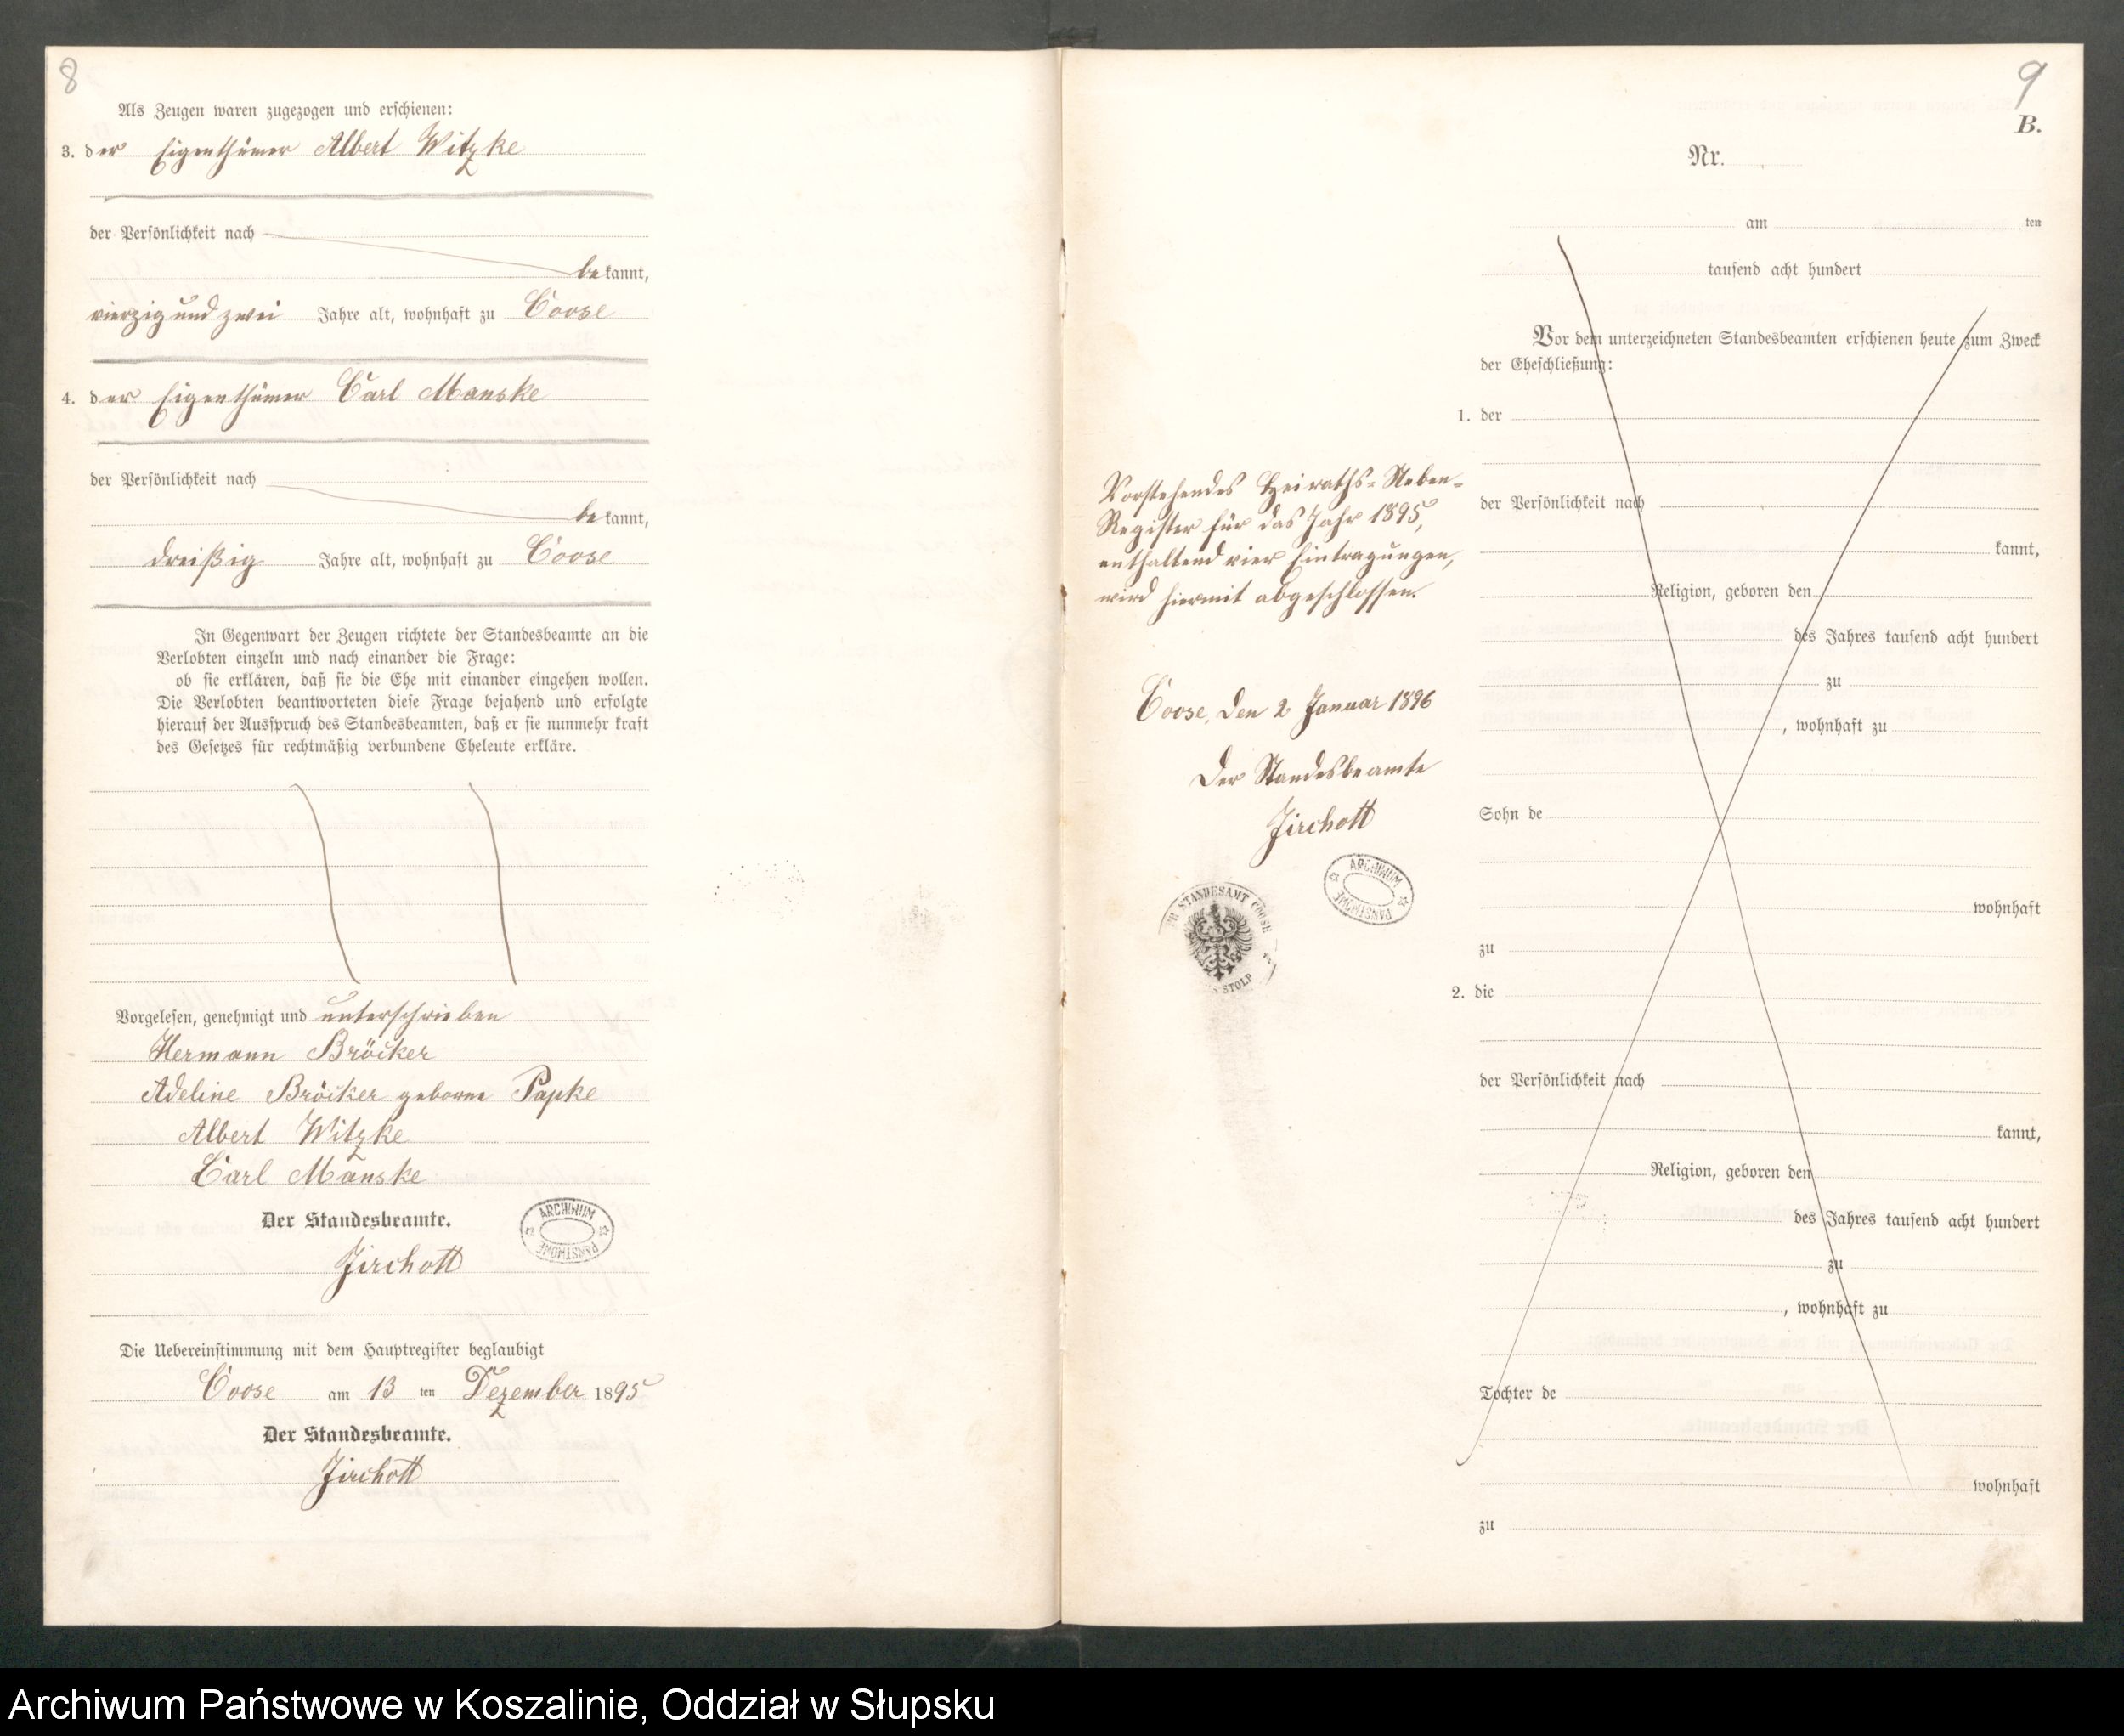 8
Als Zeugen waren zugezogen und erschienen:
3. der Eigenthümer Albert Witzke
der Persönlichkeit nach
bekannt,
vierzig und zwei Jahre alt, wohnhaft zu Coose
4. der Eigenthümer Carl Manske
der Persönlichkeit nach
bekannt,
dreißig Jahre alt, wohnhaft zu Coose
In Gegenwart der Zeugen richtete der Standesbeamte an die
Verlobten einzeln und nach einander die Frage:
ob sie erklären, daß sie die Ehe mit einander eingehen wollen.
Die Verlobten beantworteten diese Frage bejahend und erfolgte
hierauf der Ausspruch des Standesbeamten, daß er sie nunmehr kraft
des Gesetzes für rechtmäßig verbundene Eheleute erkläre.
Vorgelesen, genehmigt und unterschrieben
Hermann Bröcker
Adeline Bröcker geborne Papke
Albert Witzke
Carl Manske
Der Standesbeamte.
Jirchott
ARCHIWUM PAŃSTWOWE
Die Uebereinstimmung mit dem Hauptregister beglaubigt
Coose am 13 ten Dezember 1895
Der Standesbeamte.
Jirchott
Vorstehendes Heiraths-Neben-
Register für das Jahr 1895,
enthaltend vier Eintragungen,
wird hiermit abgeschlossen.
Coose, den 2 Januar 1896
Der Standesbeamte
Jirchott
ARCHIWUM PAŃSTWOWE
STANDESAMT COOSE
STOLP
9
B.
Nr.
am ten
tausend acht hundert
Vor dem unterzeichneten Standesbeamten erschienen heute zum Zweck
der Eheschließung:
1. der
der Persönlichkeit nach
kannt,
Religion, geboren den
des Jahres tausend acht hundert
zu
, wohnhaft zu
Sohn de
wohnhaft
zu
2. die
der Persönlichkeit nach
kannt,
Religion, geboren den
des Jahres tausend acht hundert
zu
, wohnhaft zu
Tochter de
wohnhaft
zu
Archiwum Państwowe w Koszalinie, Oddział w Słupsku